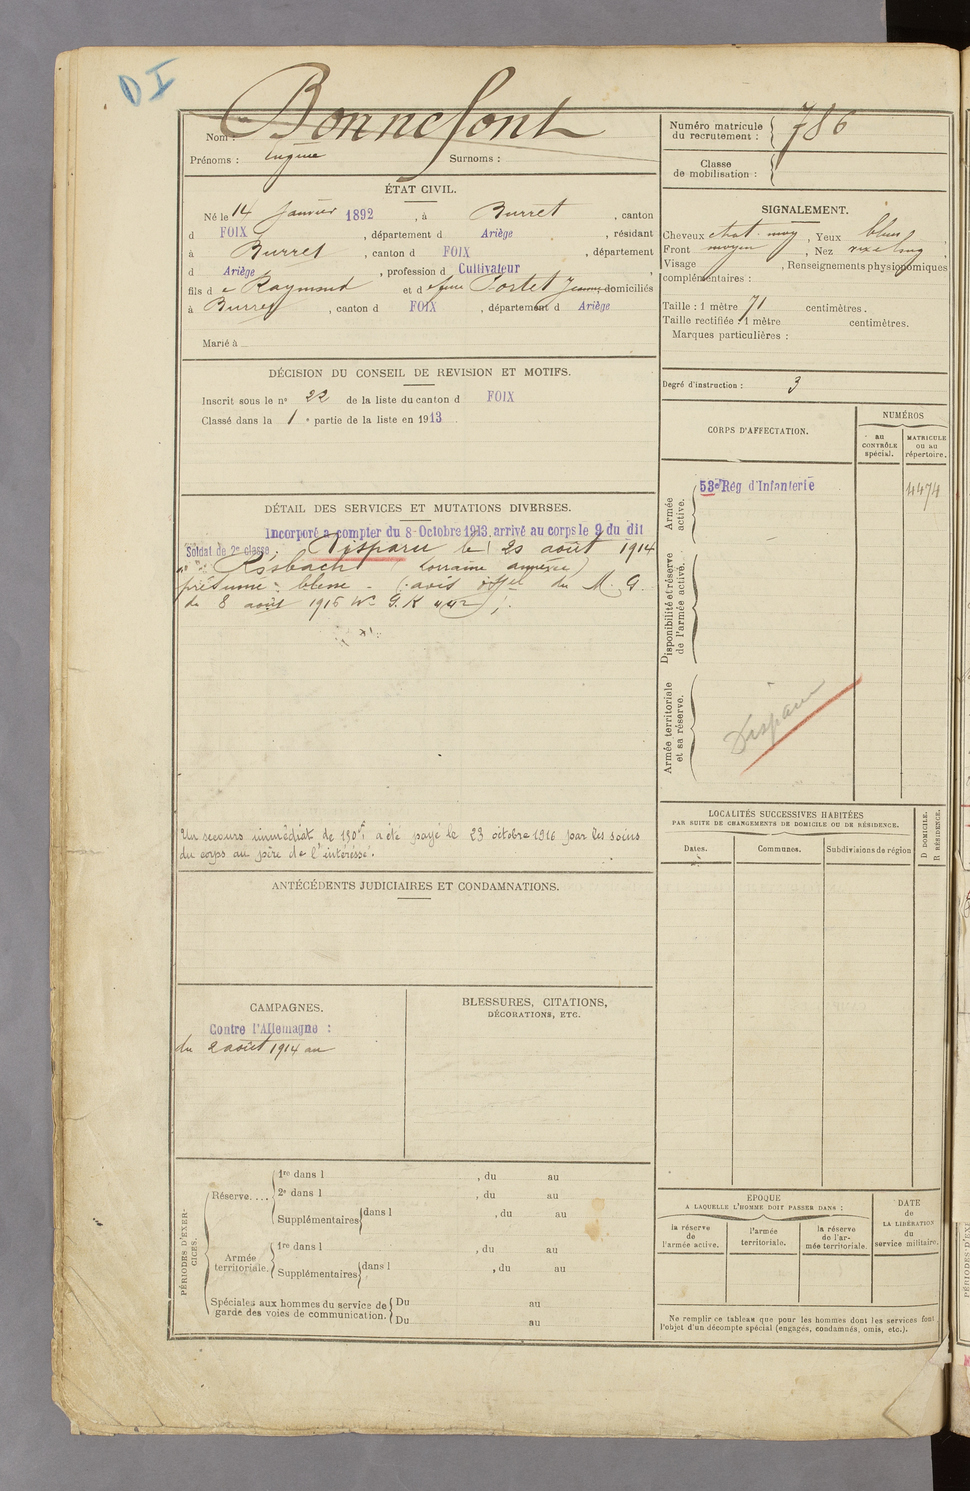 DI
Nom : Bonnefont
Prénoms : Eugène
Surnoms :
Numéro matricule
du recrutement : 786
Classe
de mobilisation :
ÉTAT CIVIL.
Né le 14 Janvier 1892, à Burret, canton
d FOIX, département d Ariège, résidant
à Burret, canton d FOIX, département
d Ariège, profession d Cultivateur,
fils d e Raymond et d e feue Portet Jeanne domiciliés
à Burret, canton d FOIX, département d Ariège
Marié à
SIGNALEMENT.
Cheveux chat. moy, Yeux bleus,
Front moyen, Nez long,
Visage , Renseignements physionomiques
complémentaires :
Taille : 1 mètre 71 centimètres.
Taille rectifiée : 1 mètre centimètres.
Marques particulières :
Degré d'instruction : 3
DÉCISION DU CONSEIL DE REVISION ET MOTIFS.
Inscrit sous le nº 22 de la liste du canton d FOIX
Classé dans la 1e partie de la liste en 1913.
CORPS D'AFFECTATION.
NUMÉROS
au
CONTRÔLE
spécial.
MATRICULE
ou au
répertoire.
Armée
active.
53e Rég d'Infanterie
4474
Disponibilité et réserve
de l'armée active.
Armée territoriale
et sa réserve.
Disparu
DÉTAIL DES SERVICES ET MUTATIONS DIVERSES.
Incorporé a compter du 8 Octobre 1913. arrivé au corps le 9 du dit
Soldat de 2e classe. Disparu le 20 août 1914
à Rosbach (Lorraine annexée)
présumé blessé - (avis offel du M. G.
du 8 août 1915 Nº G.K 442) ;.
Un secours immédiat de 150f a été payé le 23 octobre 1916 par les soins
du corps au père de l'intéressé.
LOCALITÉS SUCCESSIVES HABITÉES
PAR SUITE DE CHANGEMENTS DE DOMICILE OU DE RÉSIDENCE.
Dates.
Communes.
Subdivisions de région
D DOMICILE.
R RÉSIDENCE.
ANTÉCÉDENTS JUDICIAIRES ET CONDAMNATIONS.
CAMPAGNES.
Contre l'Allemagne :
du 2 août 1914 au
BLESSURES, CITATIONS,
DÉCORATIONS, ETC.
PÉRIODES D'EXER-
CICES.
Réserve....
1re dans l , du au
2e dans l , du au
Supplémentaires dans l , du au
Armée
territoriale.
1re dans l , du au
Supplémentaires dans l , du au
Spéciales aux hommes du service de
garde des voies de communication.
Du au
Du au
EPOQUE
A LAQUELLE L'HOMME DOIT PASSER DANS :
la réserve
de
l'armée active.
l'armée
territoriale.
la réserve
de l'ar-
mée territoriale.
DATE
de
LA LIBÉRATION
du
service militaire.
Ne remplir ce tableau que pour les hommes dont les services font
l'objet d'un décompte spécial (engagés, condamnés, omis, etc.).